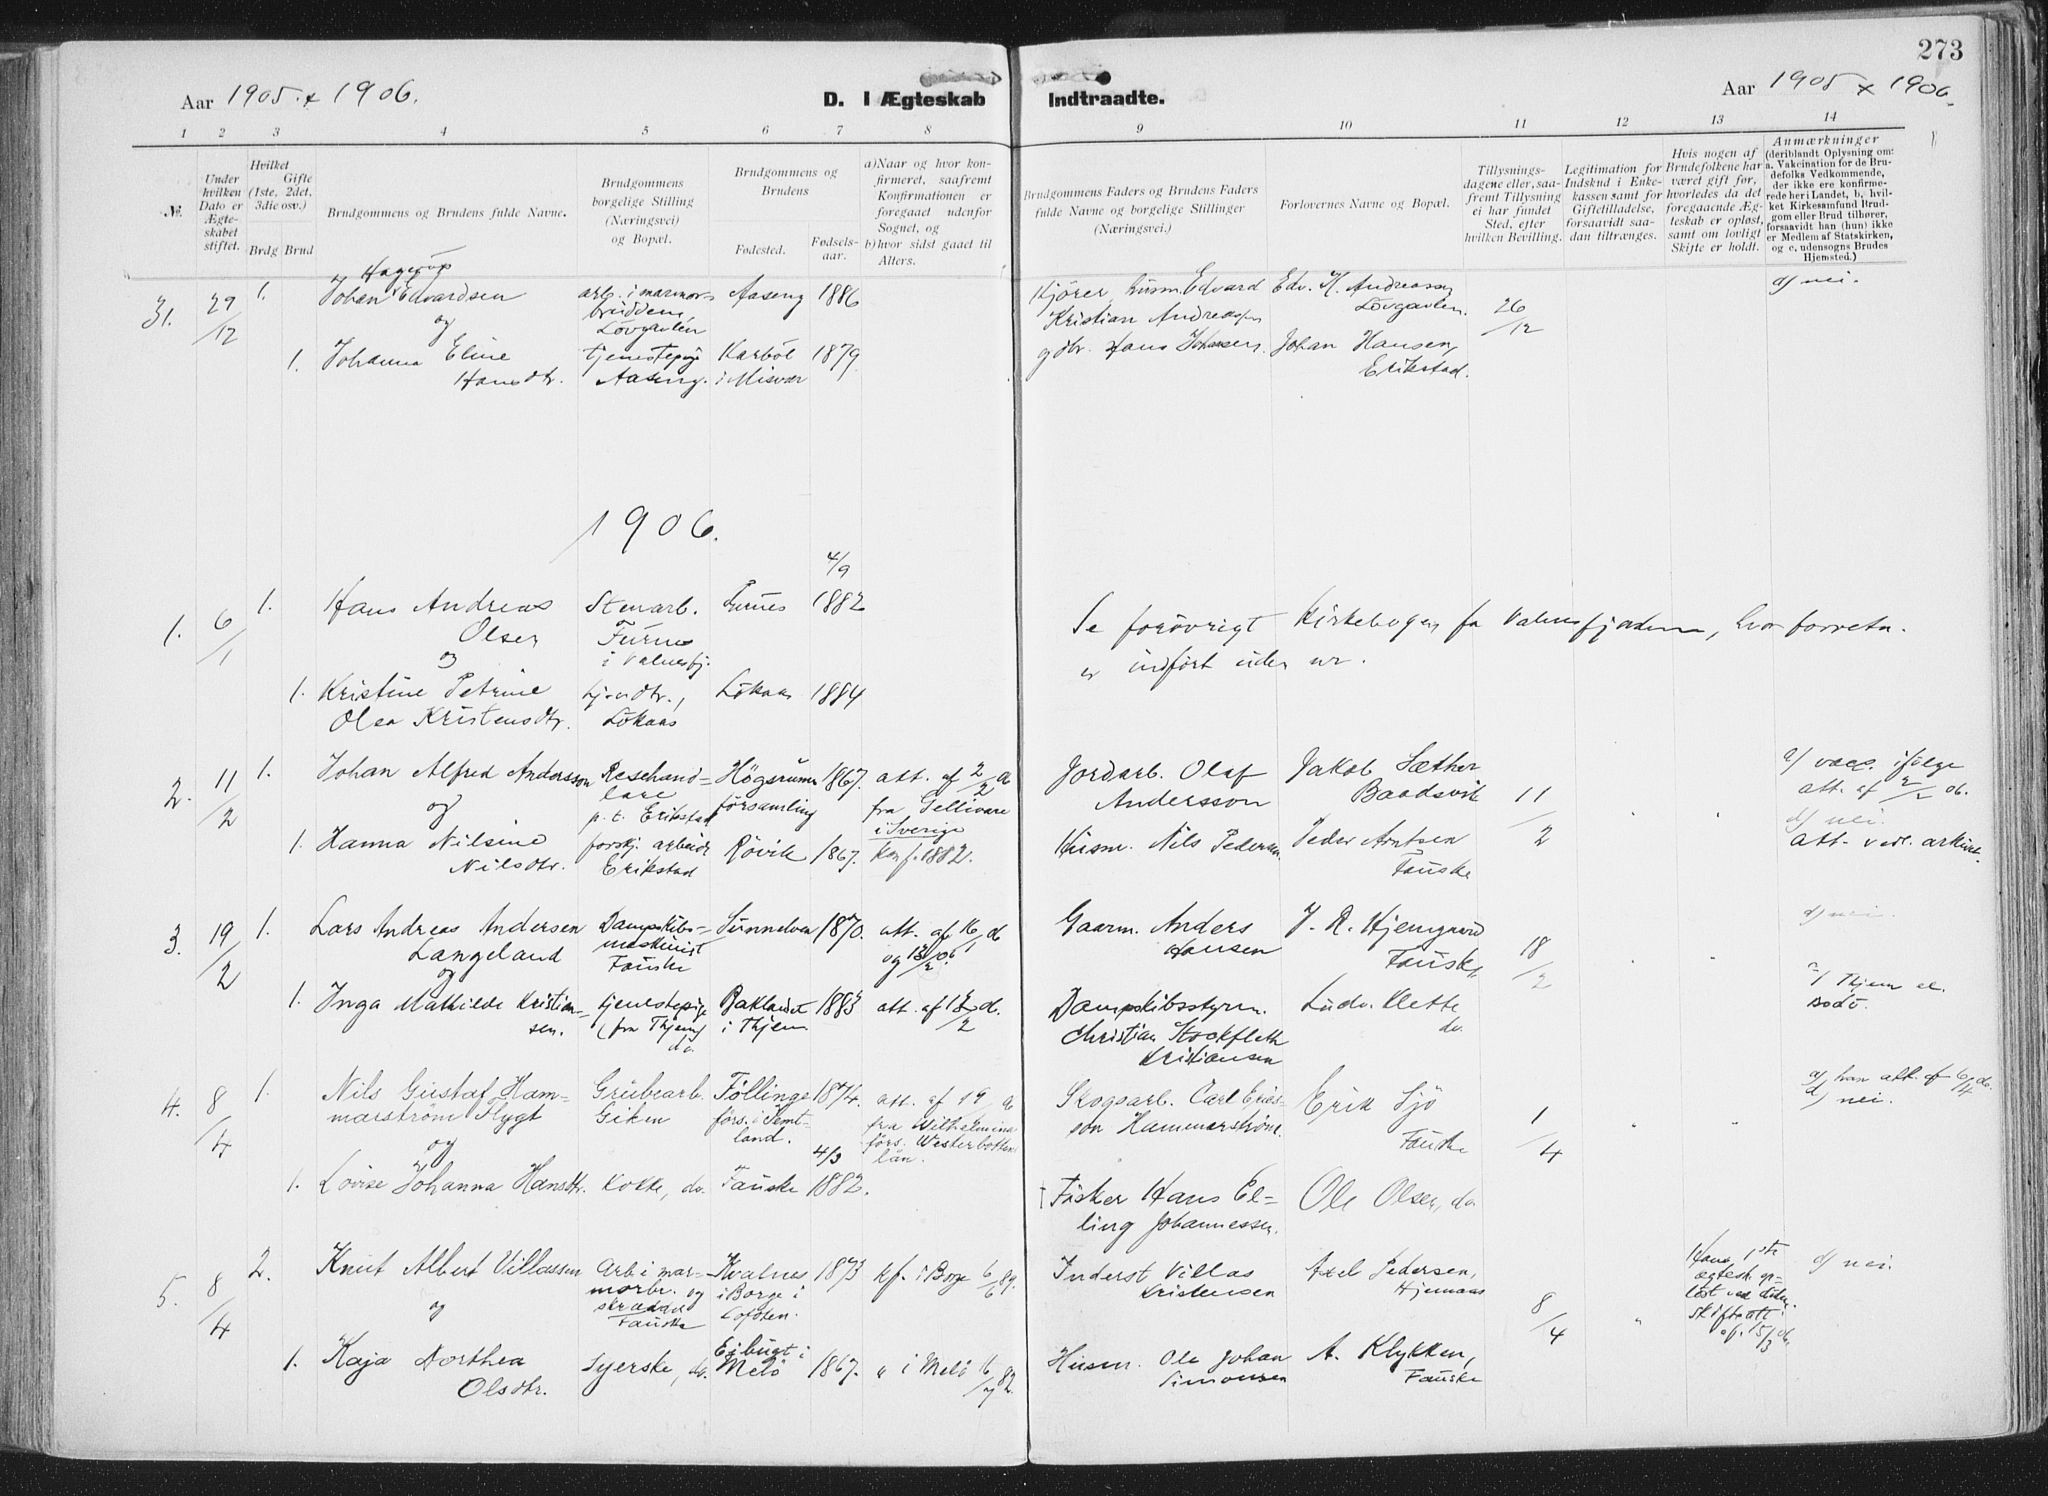 273
Aar 1905 & 1906.
D. I Ægteskab Indtraadte.
Aar 1905 & 1906.
1 2 3 4 5 6 7 8 9 10 11 12 13 14
№.
Under hvilken Dato er Ægteskabet stiftet.
Hvilket Gifte (1ste, 2det, 3die osv.)
Brdg Brud
Brudgommens og Brudens fulde Navne.
Brudgommens borgelige Stilling (Næringsvei) og Bopæl.
Brudgommens og Brudens
Fødested.
Fødselsaar.
a) Naar og hvor konfirmeret, saafremt Konfirmationen er foregaaet udenfor Sognet, og
b) hvor sidst gaaet til Alters.
Brudgommens Faders og Brudens Faders fulde Navne og borgelige Stillinger (Næringsvei.)
Forlovernes Navne og Bopæl.
Tillysningsdagene eller, saafremt Tillysning ei har fundet Sted, efter hvilken Bevilling.
Legitimation for Indskud i Enkekassen samt for Giftetilladelse, forsaavidt saadan tiltrænges.
Hvis nogen af Brudefolkene har været gift før, hvorledes da det foregaaende Ægteskab er opløst, samt om lovligt Skifte er holdt.
Anmærkninger (deriblandt Oplysning om: a. Vakcination for de Brudefolks Vedkommende, der ikke ere konfirmerede her i Landet, b, hvilket Kirkesamfund Brudgom eller Brud tilhører, forsaavidt han (hun) ikke er Medlem af Statskirken, og c, udensogns Brudes Hjemsted.)
31. 29/12 1. Johan Hagerup Edvardsen
arb. i marmorbruddene, Løvgavlen
Aaseng 1886
Kjører, husm. Edvard Kristian Andreassen
Edv. K. Andreassen Løvgavlen.
26/12
d) nei.
og
1. Johanna Eline Hansdtr.
tjenestepige Aaseng.
Karbøl i Misvær 1879.
gdbr. Hans Johansen.
Johan Hansen, Erikstad.
1906.
1. 6/1 1. Hans Andreas Olsen
Stenarb. Furnes i Valnesfj.
Furnes 4/9 1882
og
1. Kristine Petrine Olea Kristensdtr.
Løkaas
Løkaas 1884
Se forøvrigt Kirkebogen for Valnesfjorden, hvor forretn. er indført under nr.
2. 11/2 1. Johan Alfred Andersson
Resehandlare p.t. Erikstad
Högsrums församling 1867.
att. af 2/2 d. fra Gellivare i Sverige
Jordarb. Olof Andersson
Jakob Sæther Baadsvik
11/2
a) vacc. ifølge att. af 2/2 06.
d) nei.
att. vedl. arkivet.
og
1. Hanna Nilsine Nilsdtr.
forskj. arbeide Erikstad
Røvik 1867.
Konf. 1882.
Husm. Nils Pedersen.
Peder Arntsen Fauske
3. 19/2 1. Lars Andreas Andersen Langeland
Dampskibsmaskinist Fauske
Sunnelven 1870.
Gaarm. Anders Hansen
J. R. Hjemgaard Fauske
18/2
d) nei.
og
1. Inga Mathilde Kristiansen.
tjenestepige (fra Thjem do.
Baklandet i Thjem 1883
att. af 13/2 d.
Dampskibsstyrm. Christian Stockfleth Kristiansen
Ludv. Klette do.
4. 8/4 1. Nils Gustaf Hammarström Flygt
Grubearb. Giken
Föllinge förs. i Jemtland. 1874.
att. af 19/ d. fra Wilhelmina förs. Westerbottens län.
Skogsarb. Carl Ericsson Hammarström.
Erik Sjö Fauske
1/4
a) han att. af 6/4 d.
d) nei.
og
1. Lovise Johanna Hansdtr.
Kokke, do.
Fauske 4/3 1882.
† Fisker Hans Elling Johannessen.
Ole Olsen, do
5. 8/4 2. Knut Albert Villassen
Arb i marmorbr. og skrædder Fauske
Kvalnes i Borge i Lofoten. 1873
kf. i Borge 6/6 89.
Inderst Villas Kristensen
Axel Pedersen, Hjemaas
8/4
Hans 1ste ægtesk. opløst ved døden. Skifteatt. af 15/3 06.
d) nei.
og
1. Kaja Dorthea Olsdtr.
Syerske, do.
Eibugt i Melö 1867.
" i Melö
Husm. Ole Johan Simonsen
A. Klykken, Fauske